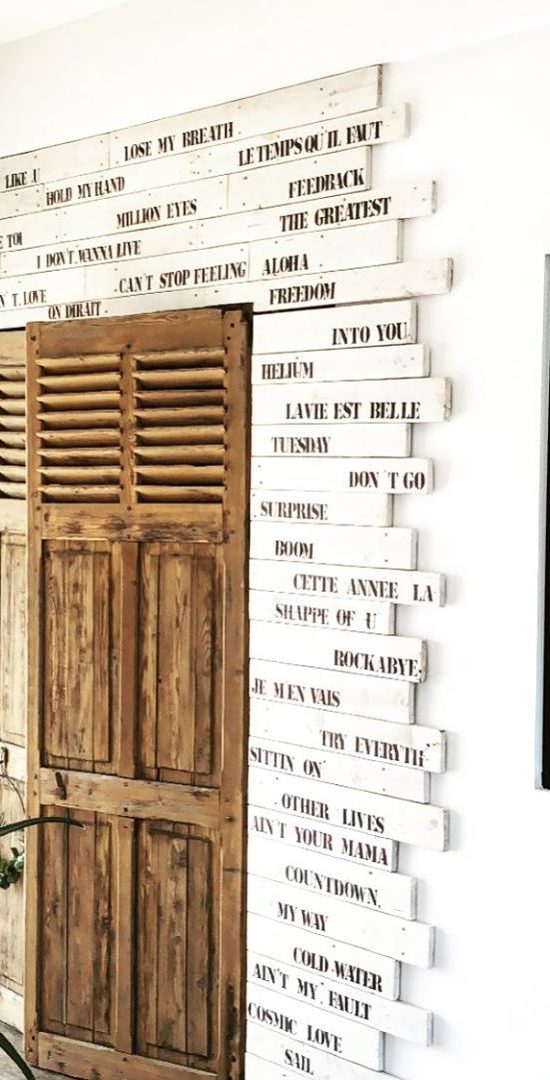 LOSE MY BREATH
LE TEMPS QU'IL FAUT
LIKE U
HOLD MY HAND
FEEDBACK
MILLION EYES
THE GREATEST
E TOI
I DON'T WANNA LIVE
ALOHA
CAN'T STOP FEELING
N'T LOVE
FREEDOM
ON DIRAIT
INTO YOU
HELIUM
LAVIE EST BELLE
TUESDAY
DON'T GO
SURPRISE
BOOM
CETTE ANNEE LA
SHAPPE OF U
ROCKABYE
JE M'EN VAIS
TRY EVERYTH
SITTIN ON
OTHER LIVES
AIN'T YOUR MAMA
COUNTDOWN
MY WAY
COLD WATER
AIN'T MY FAULT
COSMIC LOVE
SAIL